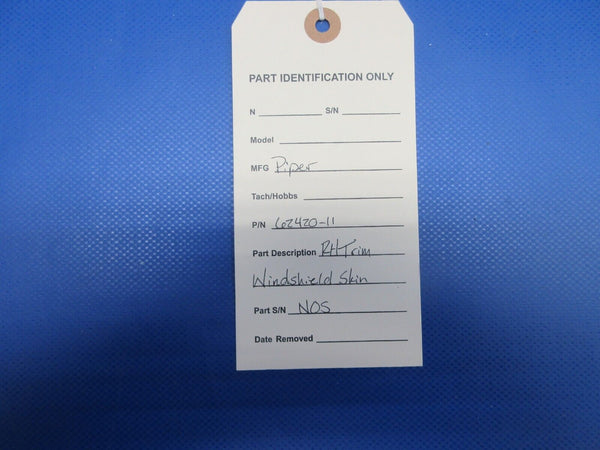 PART IDENTIFICATION ONLY
N S/N
Model
MFG Piper
Tach/Hobbs
P/N 62420-11
Part Description RH Trim
Windshield Skin
Part S/N NOS
Date Removed